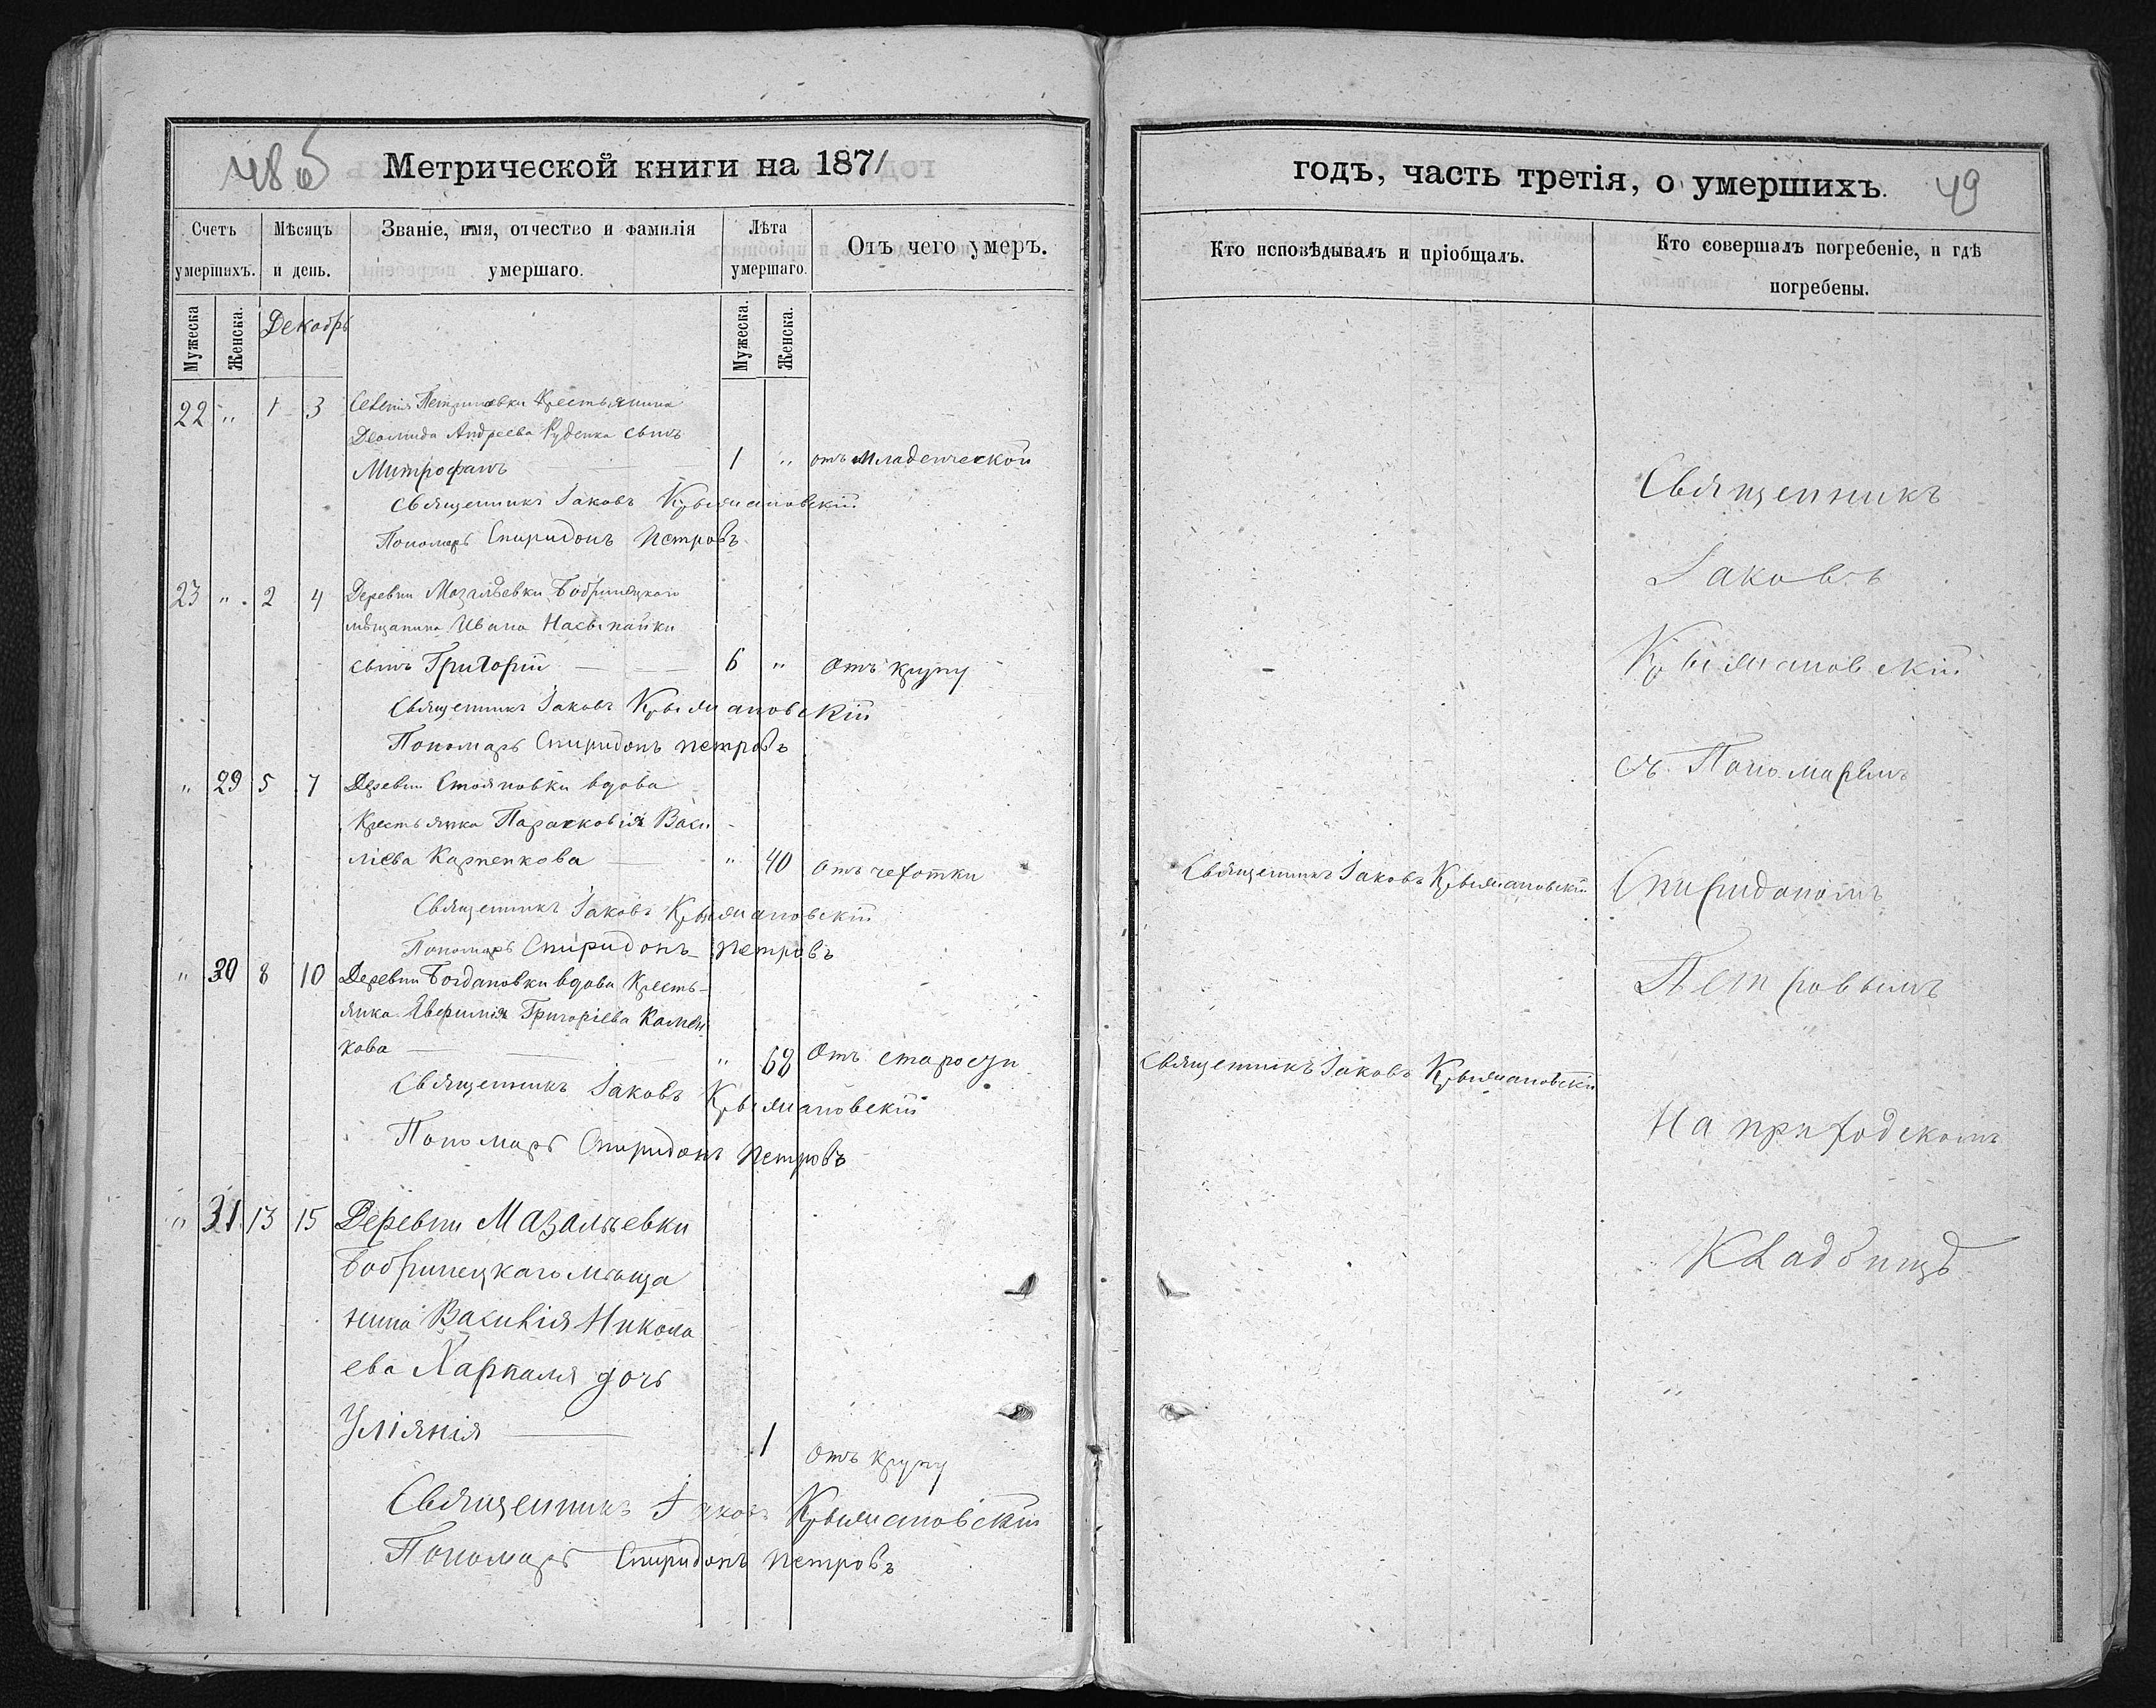 48 об
Метрической книги на 1871
Счетъ умершихъ.
Мѣсяцъ и день.
Званіе, имя, отчество и фамилія умершаго.
Лѣта умершаго.
Отъ чего умеръ.
Мужеска
Женска.
Декабрь
Мужеска.
Женска.
22 " 1 3 Селенія Петриковки Крестьянина
Деомида Андреева Руденка сынъ
Митрофанъ 1 " отъ младенческой
Священникъ Іаковъ Крыжановскій
Пономарь Спиридонъ Петровъ
23 " 2 4 Деревни Мазальевки Бобринецкаго
мѣщанина Ивана Насыпайки
сынъ Григорій 6 " Отъ крупу
Священникъ Іаковъ Крыжановскій
Пономарь Спиридонъ Петровъ
" 29 5 7 Деревни Стояновки вдова
Крестьянка Параскковія Васи
ліева Карпенкова " 40 отъ чехотки
Священникъ Іаковъ Крыжановскій
Пономарь Спиридонъ Петровъ
" 30 8 10 Деревни Богдановки вдова Кресть-
янка Ефимія Григоріева Камен
кова " 68 Отъ старости
Священникъ Іаковъ Крыжановскій
Пономарь Спиридонъ Петровъ
" 31 13 15 Деревни Мазальевки
Бобринецкаго мѣща
нина Василія Никола
ева Харпаля дочь
Уліянія 1 Отъ крупу
Священникъ Іаковъ Крыжановскій
Пономарь Спиридонъ Петровъ
годъ, часть третія, о умершихъ.
49
Кто исповѣдывалъ и пріобщалъ.
Кто совершалъ погребеніе, и гдѣ погребены.
Священникъ
Іаковъ
Крыжановскій
съ Пономаремъ
Священникъ Іаковъ Крыжановскій
Спиридономъ
Петровымъ
Священникъ Іаковъ Крыжановскій
На приходскомъ
Кладбищѣ